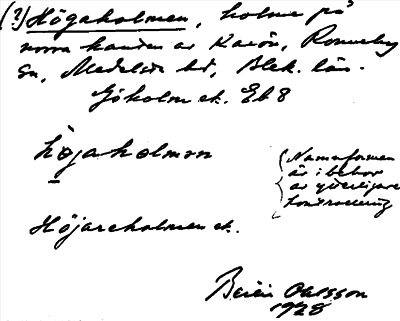 (?) Högaholmen, holme på
norra kanten av Karön, Ronneby
sn, Medelsta hd, Blek. län.
Gökolm ek. Eb 8
högaholmen
(Namnformen
är i behov
av ytterligare
kontrollering
Höjareholmen ek.
Olsson
1928